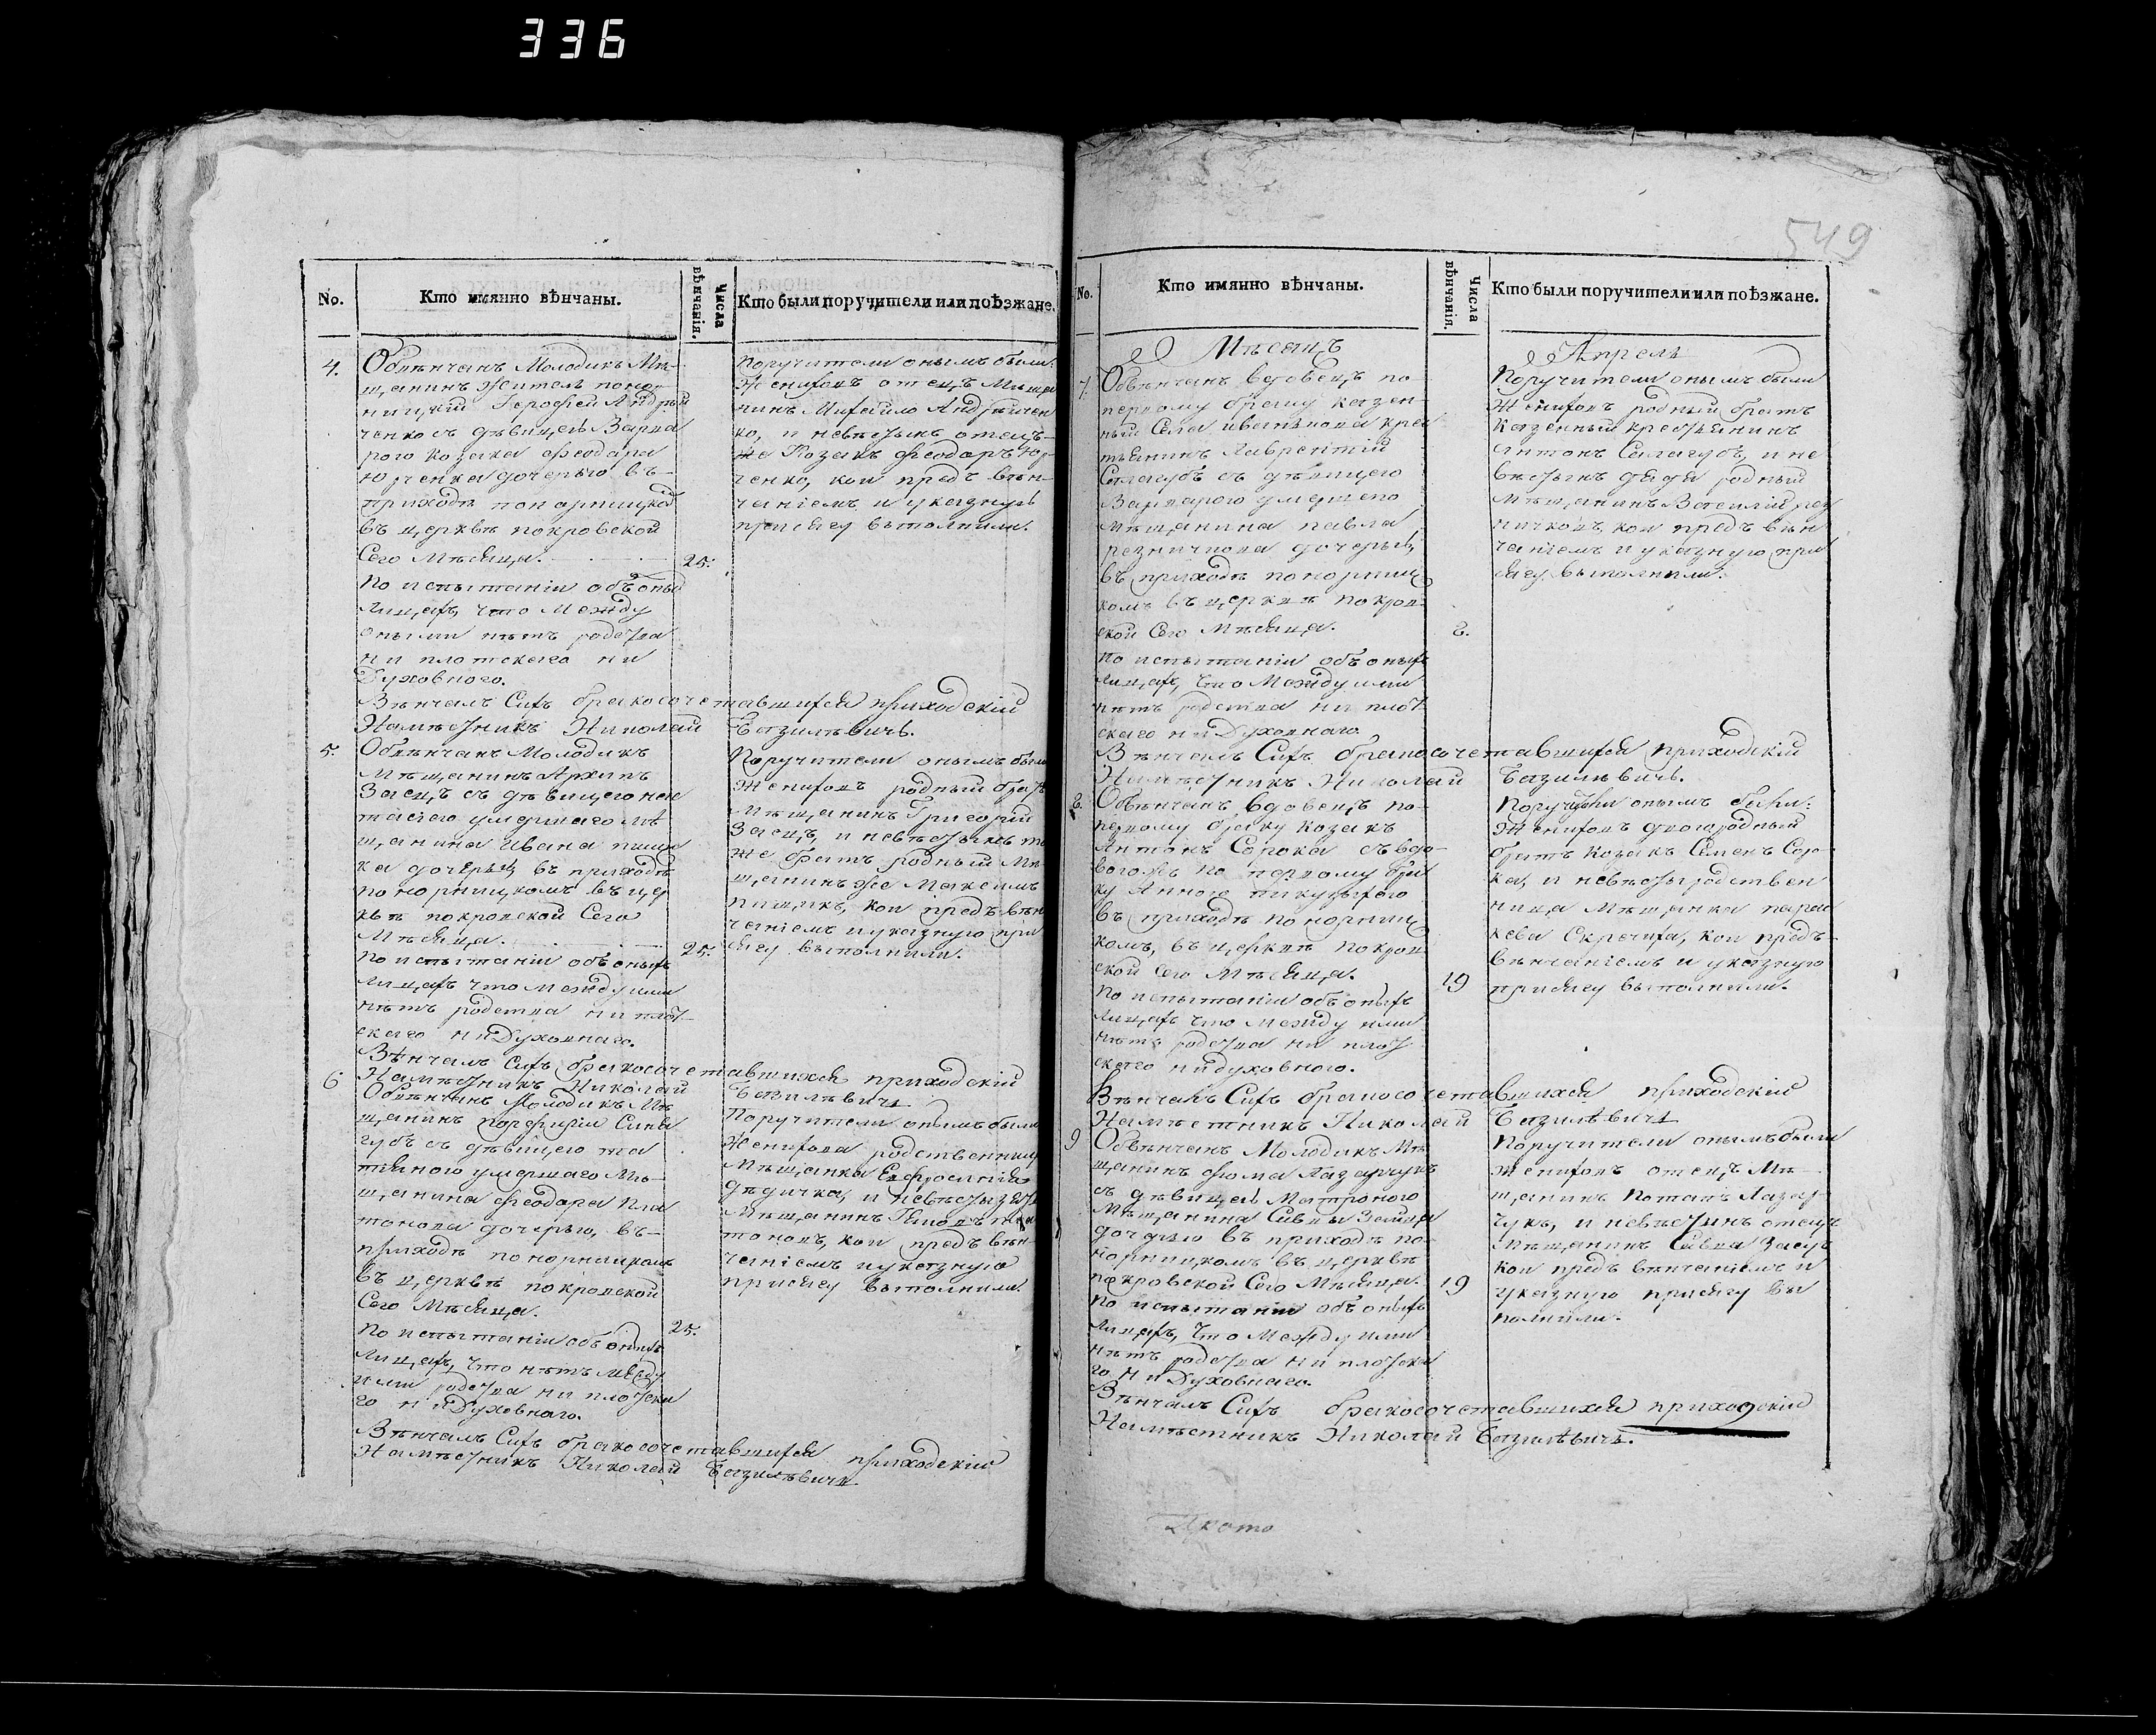 336
549
No.
Кто имянно вѣнчаны.
Числа вѣнчанія.
Кто были поручители или поѣзжане.
4.
Обвѣнчанъ Молодикъ Мѣ-
щанинъ житель поно-
ницкій Герофей Андрѣй
ченко съ дѣвицею Варва
рого козака Феодора
Юрченка дочерью въ-
приходѣ понорницкой
въ церквѣ покровской
Сего Мѣсяца.
25.
По испытаніи объ оныхъ
лицахъ, что Между
оными нѣтъ родства
ни плотскаго ни
Духовного.
Поручители онымъ были:
Жениховъ отецъ Мѣща
нинъ Михайло Андрѣйчен
ко, и невѣстинъ отецъ-
же Козакъ Феодоръ Юр-
ченко, кои предъ вѣн-
чаніемъ и указную
присягу выполнили.
Вѣнчалъ Сихъ бракосочетавшихся приходскій
Намѣстникъ Николай Базилѣвичъ.
5.
Обвѣнчанъ Молодикъ
Мѣщанинъ Архипъ
Заецъ съ дѣвицего
умершаго мѣ
щанина Ивана пищи
ка дочерью въ приходѣ
понорницкомъ въ цер
квѣ покровской Сего
Мѣсяца.
25.
По испытаніи объ оныхъ
лицахъ что Между ими
нѣтъ родства ни плот-
скаго ни Духовнаго.
Поручители онымъ были
Жениховъ родный братъ
Мѣщанинъ Григорій
Заецъ, и невѣстинъ та
же братъ родный Мѣ-
щанинъ же Максимъ
пищикъ, кои предъ вѣн
чаніемъ и указную при
сягу выполнили.
Вѣнчалъ Сихъ бракосочетавшихся приходскій
Намѣстникъ Николай Базилѣвичъ
6
Обвѣнчанъ Молодикъ Мѣ
щанинъ Порфирій Сина
губъ съ дѣвицего та
тіяною умершаго Мѣ-
щанина Феодора Пла
тонова дочерью, въ-
приходѣ понорницкомъ
въ церквѣ покровской
Сего Мѣсяца.
25.
По испытаніи объ оныхъ
лицахъ, что нѣтъ между
ими родства ни плотска
го ни Духовнаго.
Поручители онымъ были
Женихова родственница
Мѣщанка Ефросинія
Дѣдичка, и невѣсты
Мѣщанинъ пла
тоновъ, кои предъ вѣн-
чаніемъ и указную
присягу выполнили.
Вѣнчалъ Сихъ бракосочетавшихся приходскій
Намѣстникъ Николай Базилѣвичъ
No.
Кто имянно вѣнчаны.
Числа вѣнчанія.
Кто были поручители или поѣзжане.
Мѣсяцъ Апрель
7.
Обвѣнчанъ вдовецъ по-
первому браку казен-
ный Села иванкова крес
тьянинъ Лаврентій
Салагубъ съ дѣвицего
Варварого умершего
мѣщанина павла
резничкова дочерью,
въ приходѣ понорниц
комъ въ церквѣ покров-
ской Сего Мѣсяца.
2.
По испытаніи объ оныхъ
лицахъ, что Между ими
нѣтъ родства ни плот-
скаго ни Духовнаго.
Поручители онымъ были
Жениховъ родный братъ
казенный крестьянинъ
Антонъ Салагубъ, и не
вѣстинъ дядя родный
мѣщанинъ Василій рез
ничковъ, кои предъ вѣн
чаніемъ и указную при
сягу выполнили.
Вѣнчалъ Сихъ бракосочетавшихся приходскій
Намѣстникъ Николай Базилѣвичъ.
8.
Обвѣнчанъ вдовецъ по-
первому браку козакъ
Антонъ Сорока съ вдо-
вого по первому бра
ку Анною
въ приходѣ понорниц
комъ, въ церквѣ покров
ской Сего Мѣсяца.
19
По испытаніи объ оныхъ
лицахъ что между ими
нѣтъ родства ни плот
скаго ни духовного.
Поручители онымъ были:
Жениховъ двоюродный
братъ козакъ Семенъ Соро-
ка, и невѣсты родствен
ница Мѣщанка парас
кева Скрепиха, кои предъ-
вѣнчаніемъ и указную
присягу выполнили.
Вѣнчалъ Сихъ бракосочетавшихся приходскій
Намѣстникъ Николай Базилѣвичъ
9
Обвѣнчанъ Молодикъ Мѣ
щанинъ Фома Лазарчукъ
съ дѣвицею Матроного
Мѣщанина Саввы Зайца
дочерью въ приходѣ по-
норницкомъ въ церквѣ
покровской Сего Мѣсяца.
19
По испытаніи объ оныхъ
лицахъ, что Между ими
нѣтъ родства ни плотска
го ни Духовнаго.
Поручители онымъ были
Жениховъ отецъ Мѣ-
щанинъ Потапъ Лазар-
чукъ, и невѣстинъ отецъ
Мѣщанинъ Савва Заецъ
кои предъ вѣнчаніемъ и
указную присягу вы
полнили.
Вѣнчалъ Сихъ бракосочетавшихся приходскій
Намѣстникъ Николай Базилѣвичъ.